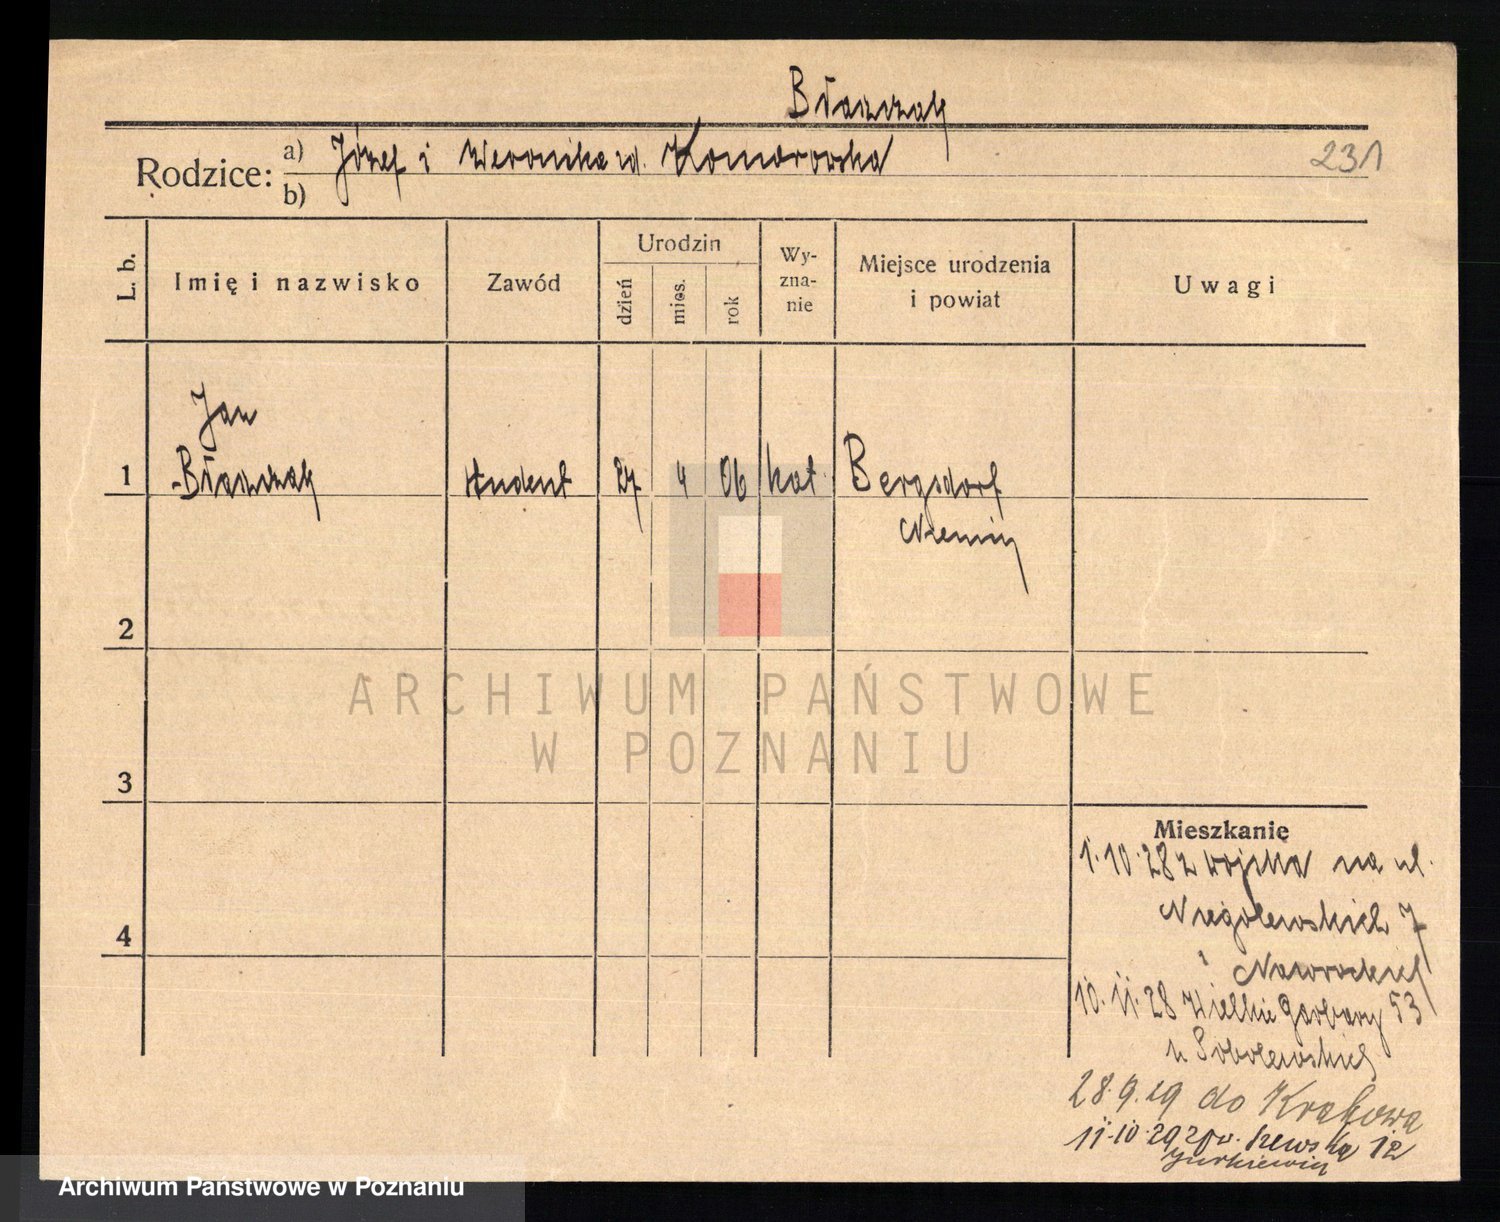 Błaszczak
Rodzice: a) Józef i Weronika zd. Komorowska
231
b)
L. b.
Imię i nazwisko
Zawód
Urodzin
dzień
mies.
rok
Wy-
zna-
nie
Miejsce urodzenia
i powiat
Uwagi
Jan
1 Błaszczak student 27 4 06 kat. Bergsdorf
Niemcy
2
ARCHIWUM PAŃSTWOWE
W POZNANIU
3
4
Mieszkanie
1.10.28 z wojska na ul.
Niegolewskich 7
Nawrockiej
10.11.28 Wielkie Garbary 53
u Sobolewskiej
28.9.29 do Krakowa
11.10.29 12
Jurkiewicz
Archiwum Państwowe w Poznaniu